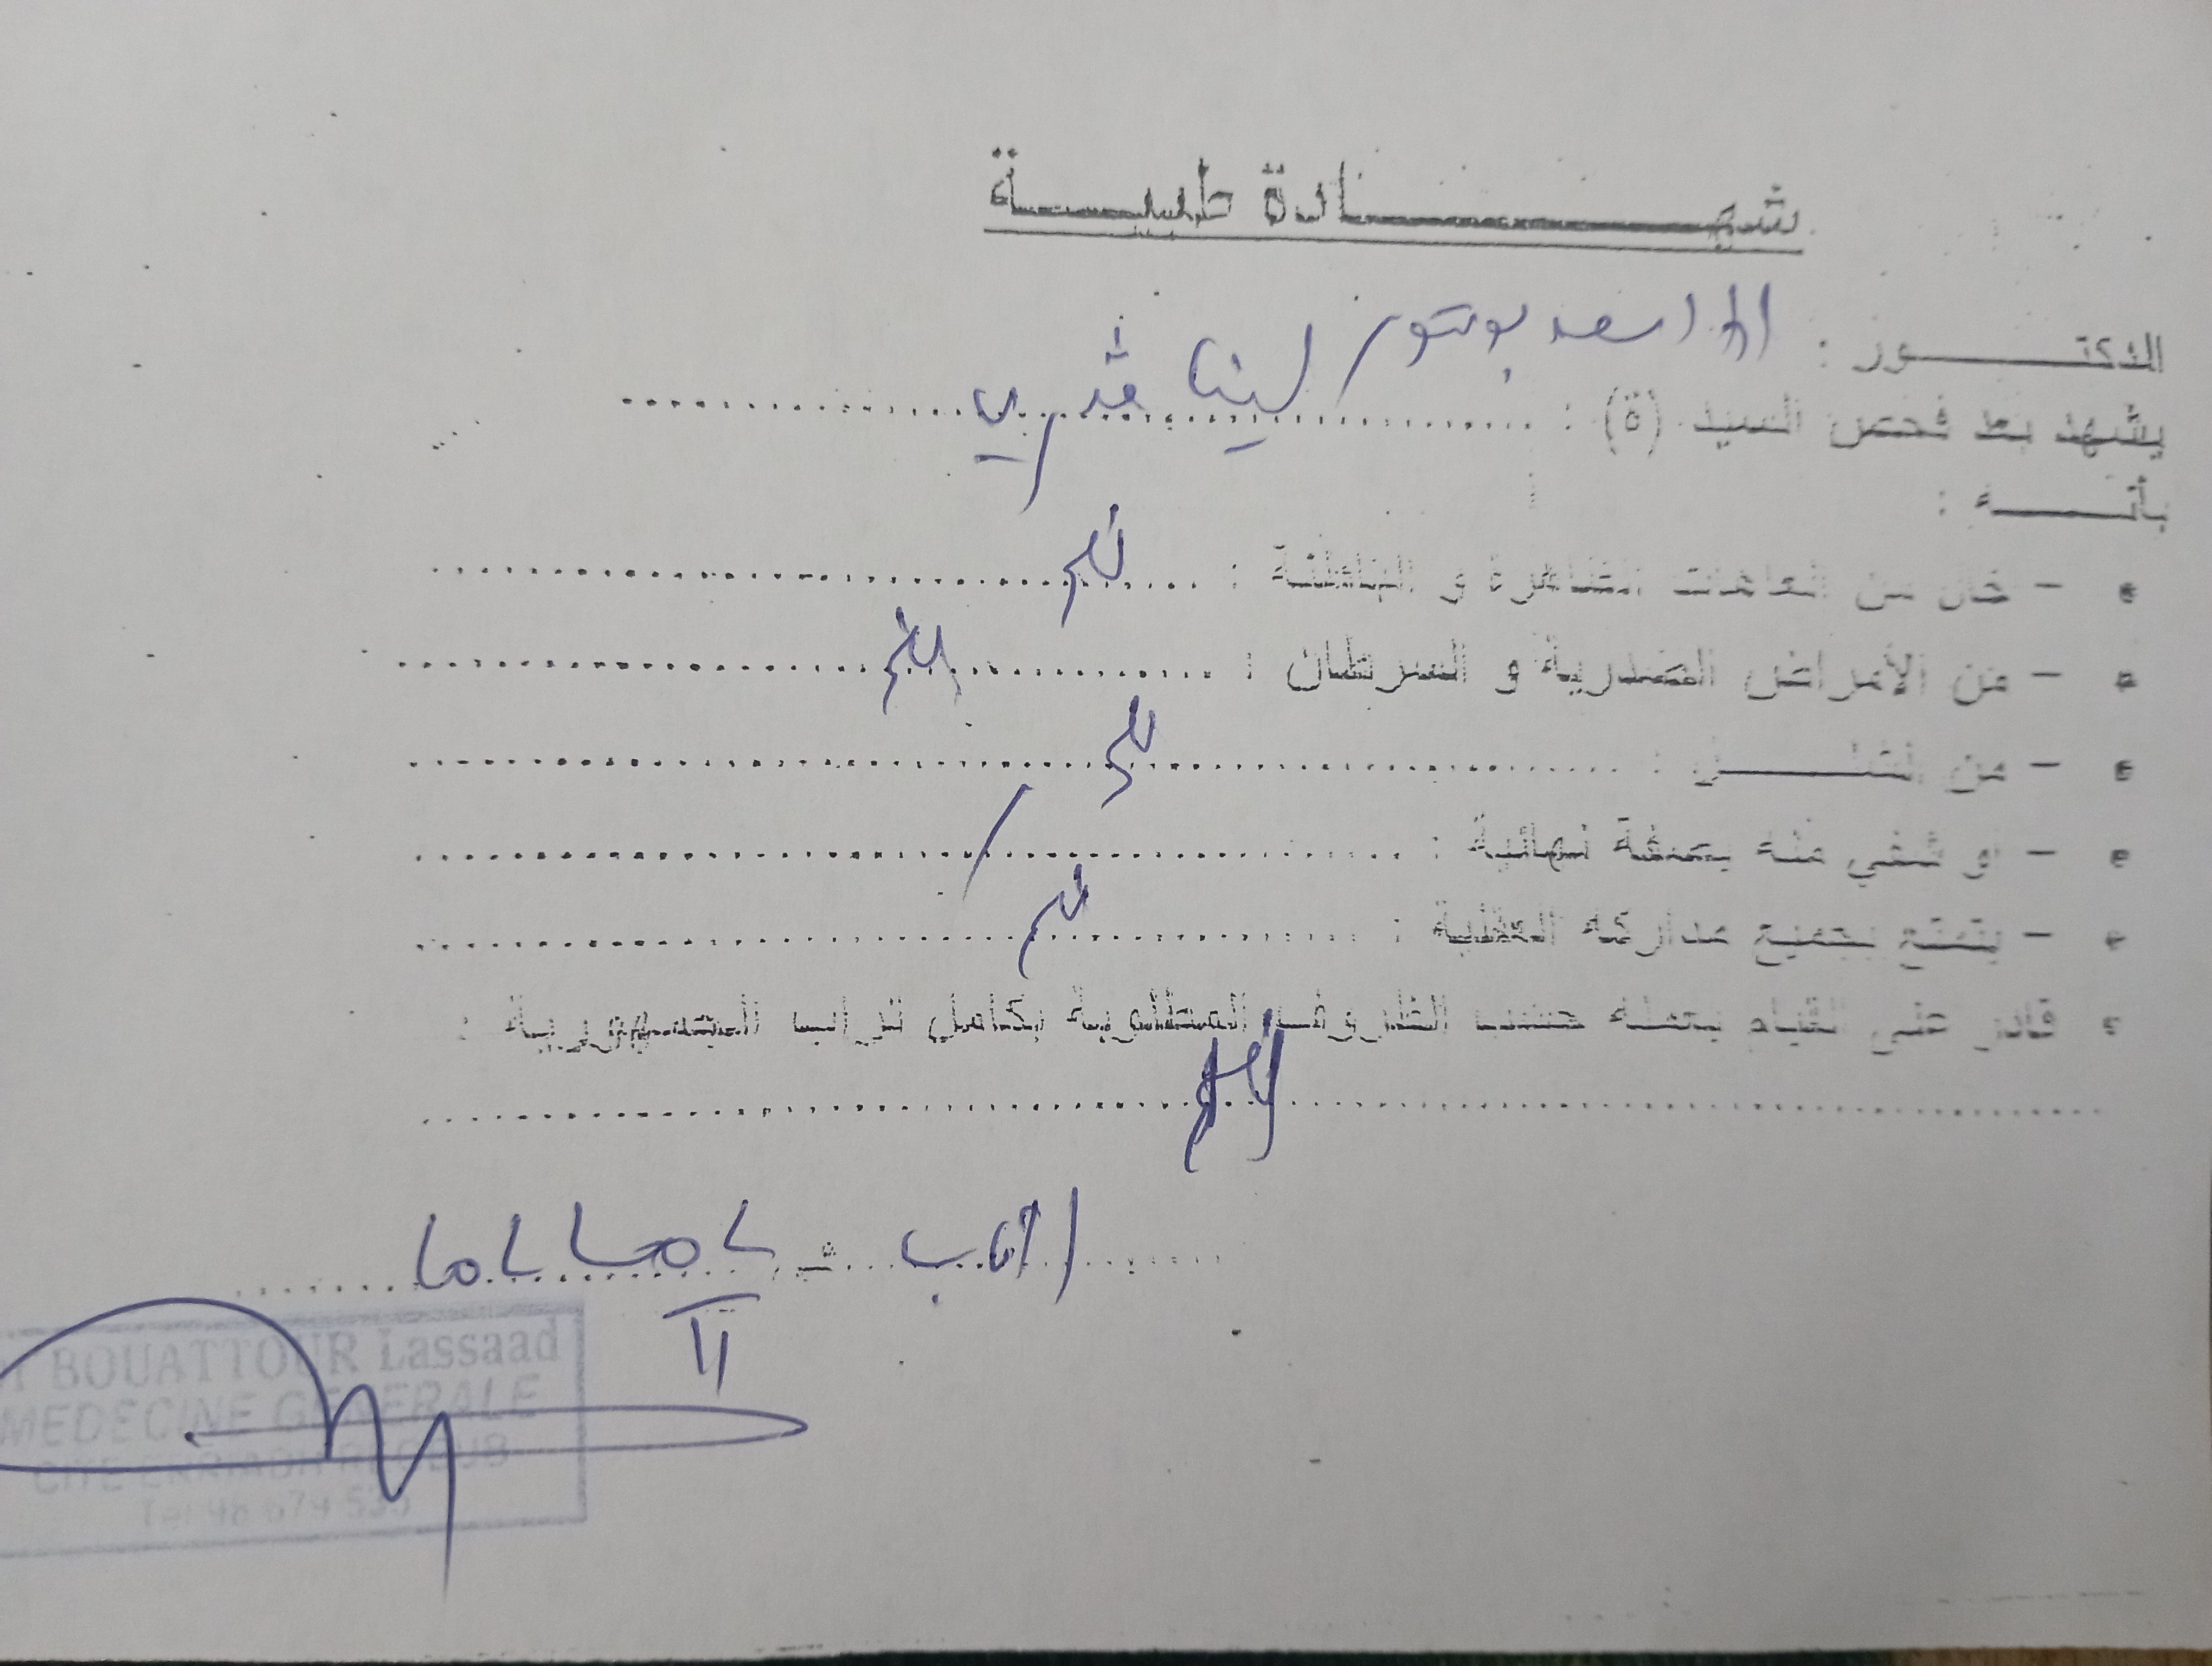 شهـــــــادة طبيـــــة
الدكتـــــــور : الاسعد بوعتور
يشهد بعد فحص السيد (ة) : لينا قدري
بأنـــــه :
- خال من العاهات الظاهرة و الباطنة : نعم
- من الأمراض الصدرية و السرطان : نعم
- من الشلــــــل : نعم
- او شفي منه بصفة نهائية : /
- يتمتع بجميع مداركه العقلية : نعم
قادر على القيام بعمله حسب الظروف المطلوبة بكامل تراب الجمهورية :
نعم
في
BOUATTOUR Lassaad
MEDECINE GENERALE
CITE ERRIADH